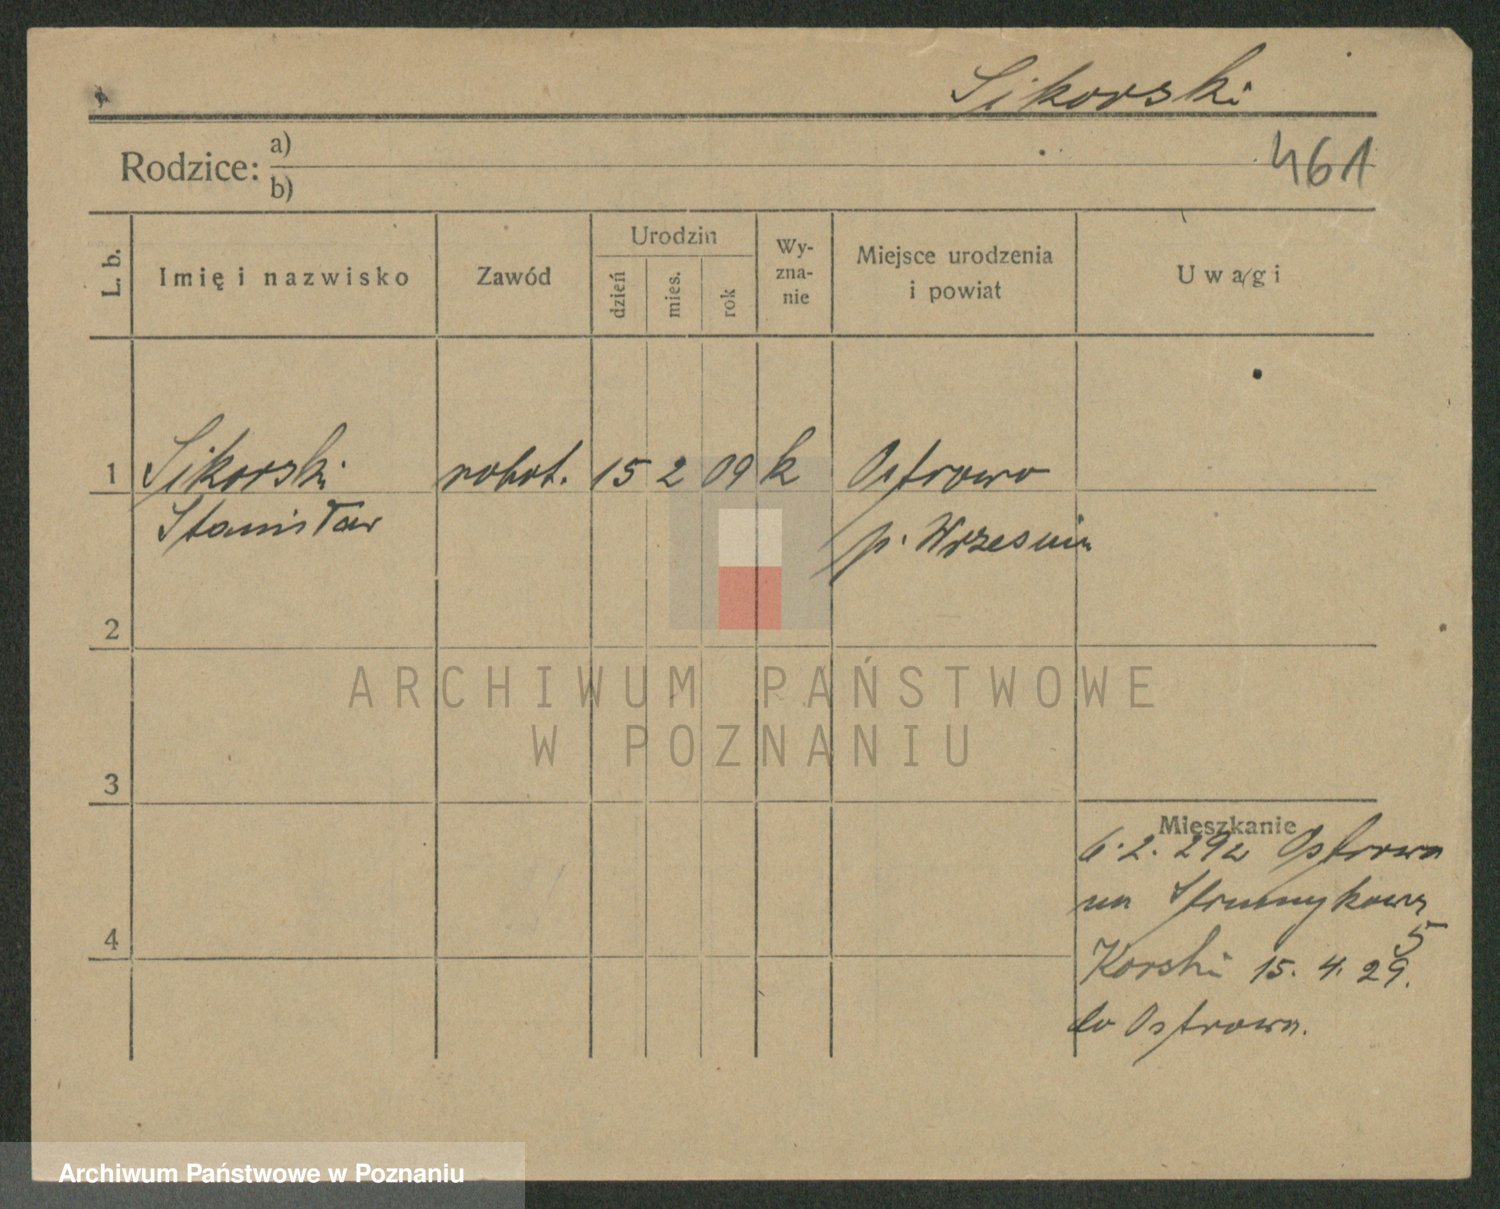 Sikorski
Rodzice: a)
b)
461
L. b.
Imię i nazwisko
Zawód
Urodzin
dzień
mies.
rok
Wy-
zna-
nie
Miejsce urodzenia
i powiat
Uwagi
1 Sikorski robot. 15 2 09 k Ostrowo
Stanisław p. Wrzesnia
2
3
4
Mieszkanie
6.2.29 z Ostrowa
na Strumykową
5
Korski 15.4.29.
do Ostrowa.
ARCHIWUM PAŃSTWOWE
W POZNANIU
Archiwum Państwowe w Poznaniu